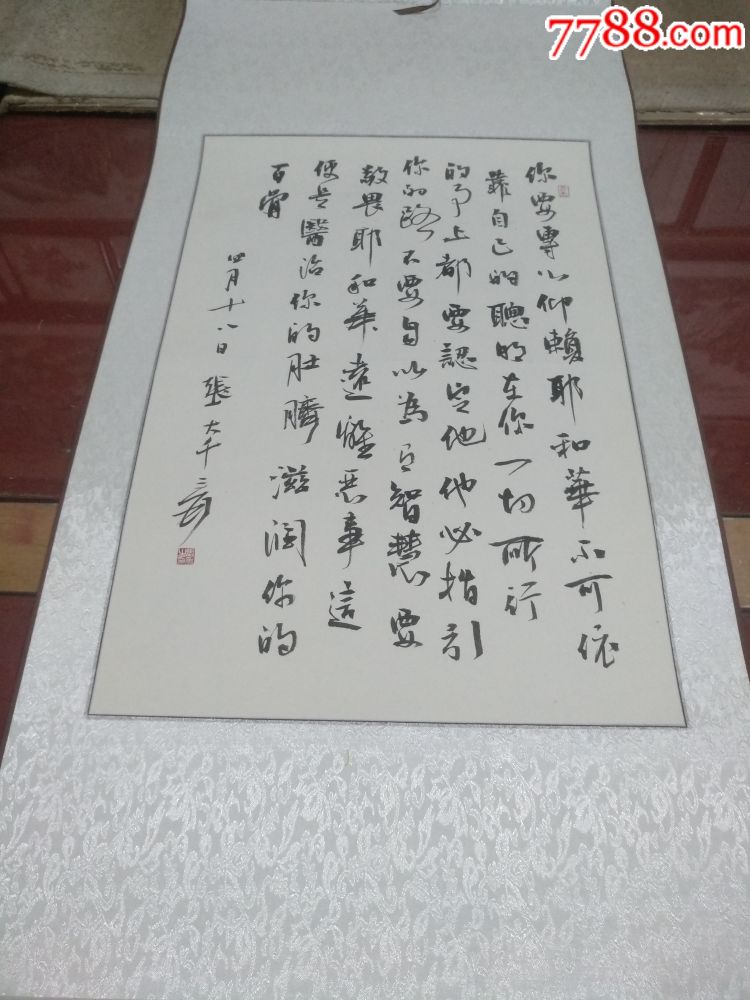 7788.com
你要專心仰賴耶和華不可依
靠自己的聰明在你一切所行
的事上都要認定他他必指引
你的路不要自以為有智慧要
敬畏耶和華遠離惡事這
便是醫治你的肚臍滋潤你的
百骨
四月十八日 張大千爰